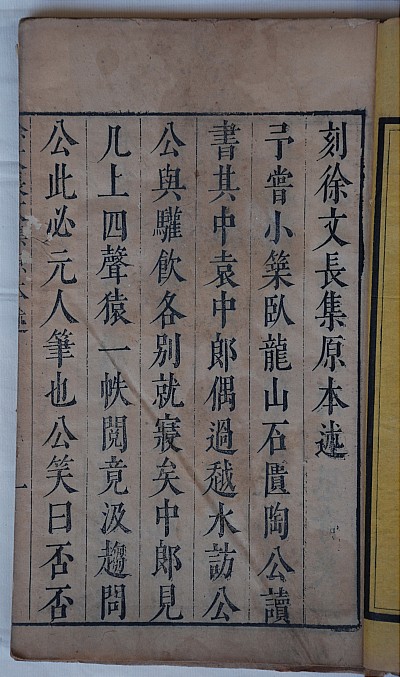 刻徐文長集原本述
予嘗小築臥龍山石匱陶公讀
書其中袁中郎偶過越水訪公
公與驩飲各別就寢矣中郎見
几上四聲猿一帙閱竟汲趨問
公此必元人筆也公笑曰否否
一